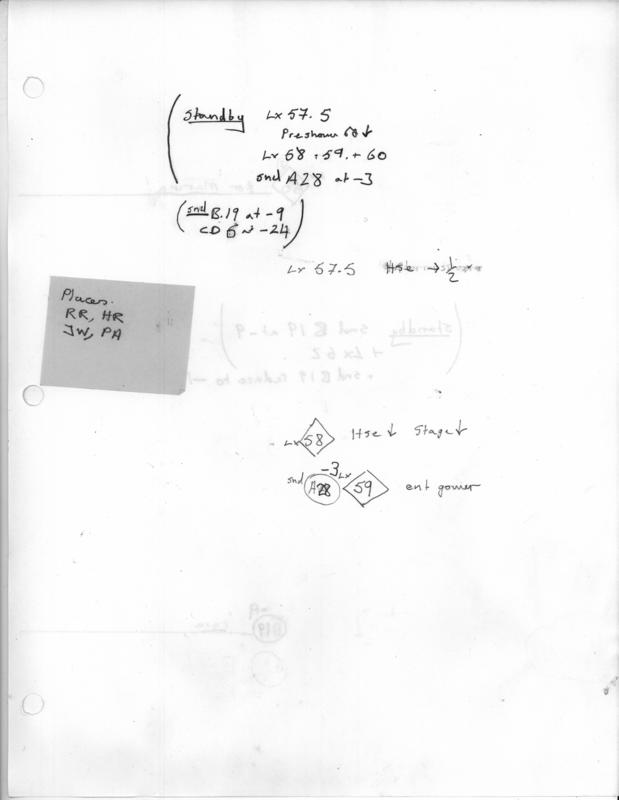 Standby Lx 57.5
Preshow ↓
Lx 58 + 59 + 60
snd A28 at -3
(snd B.19 at -9
CD 6 at -24)
Lx 57.5 Hse → 1/2
Places.
RR, HR
JW, PA
Lx 58 Hse ↓ Stage ↓
-3
snd A28 Lx 59 ent gower